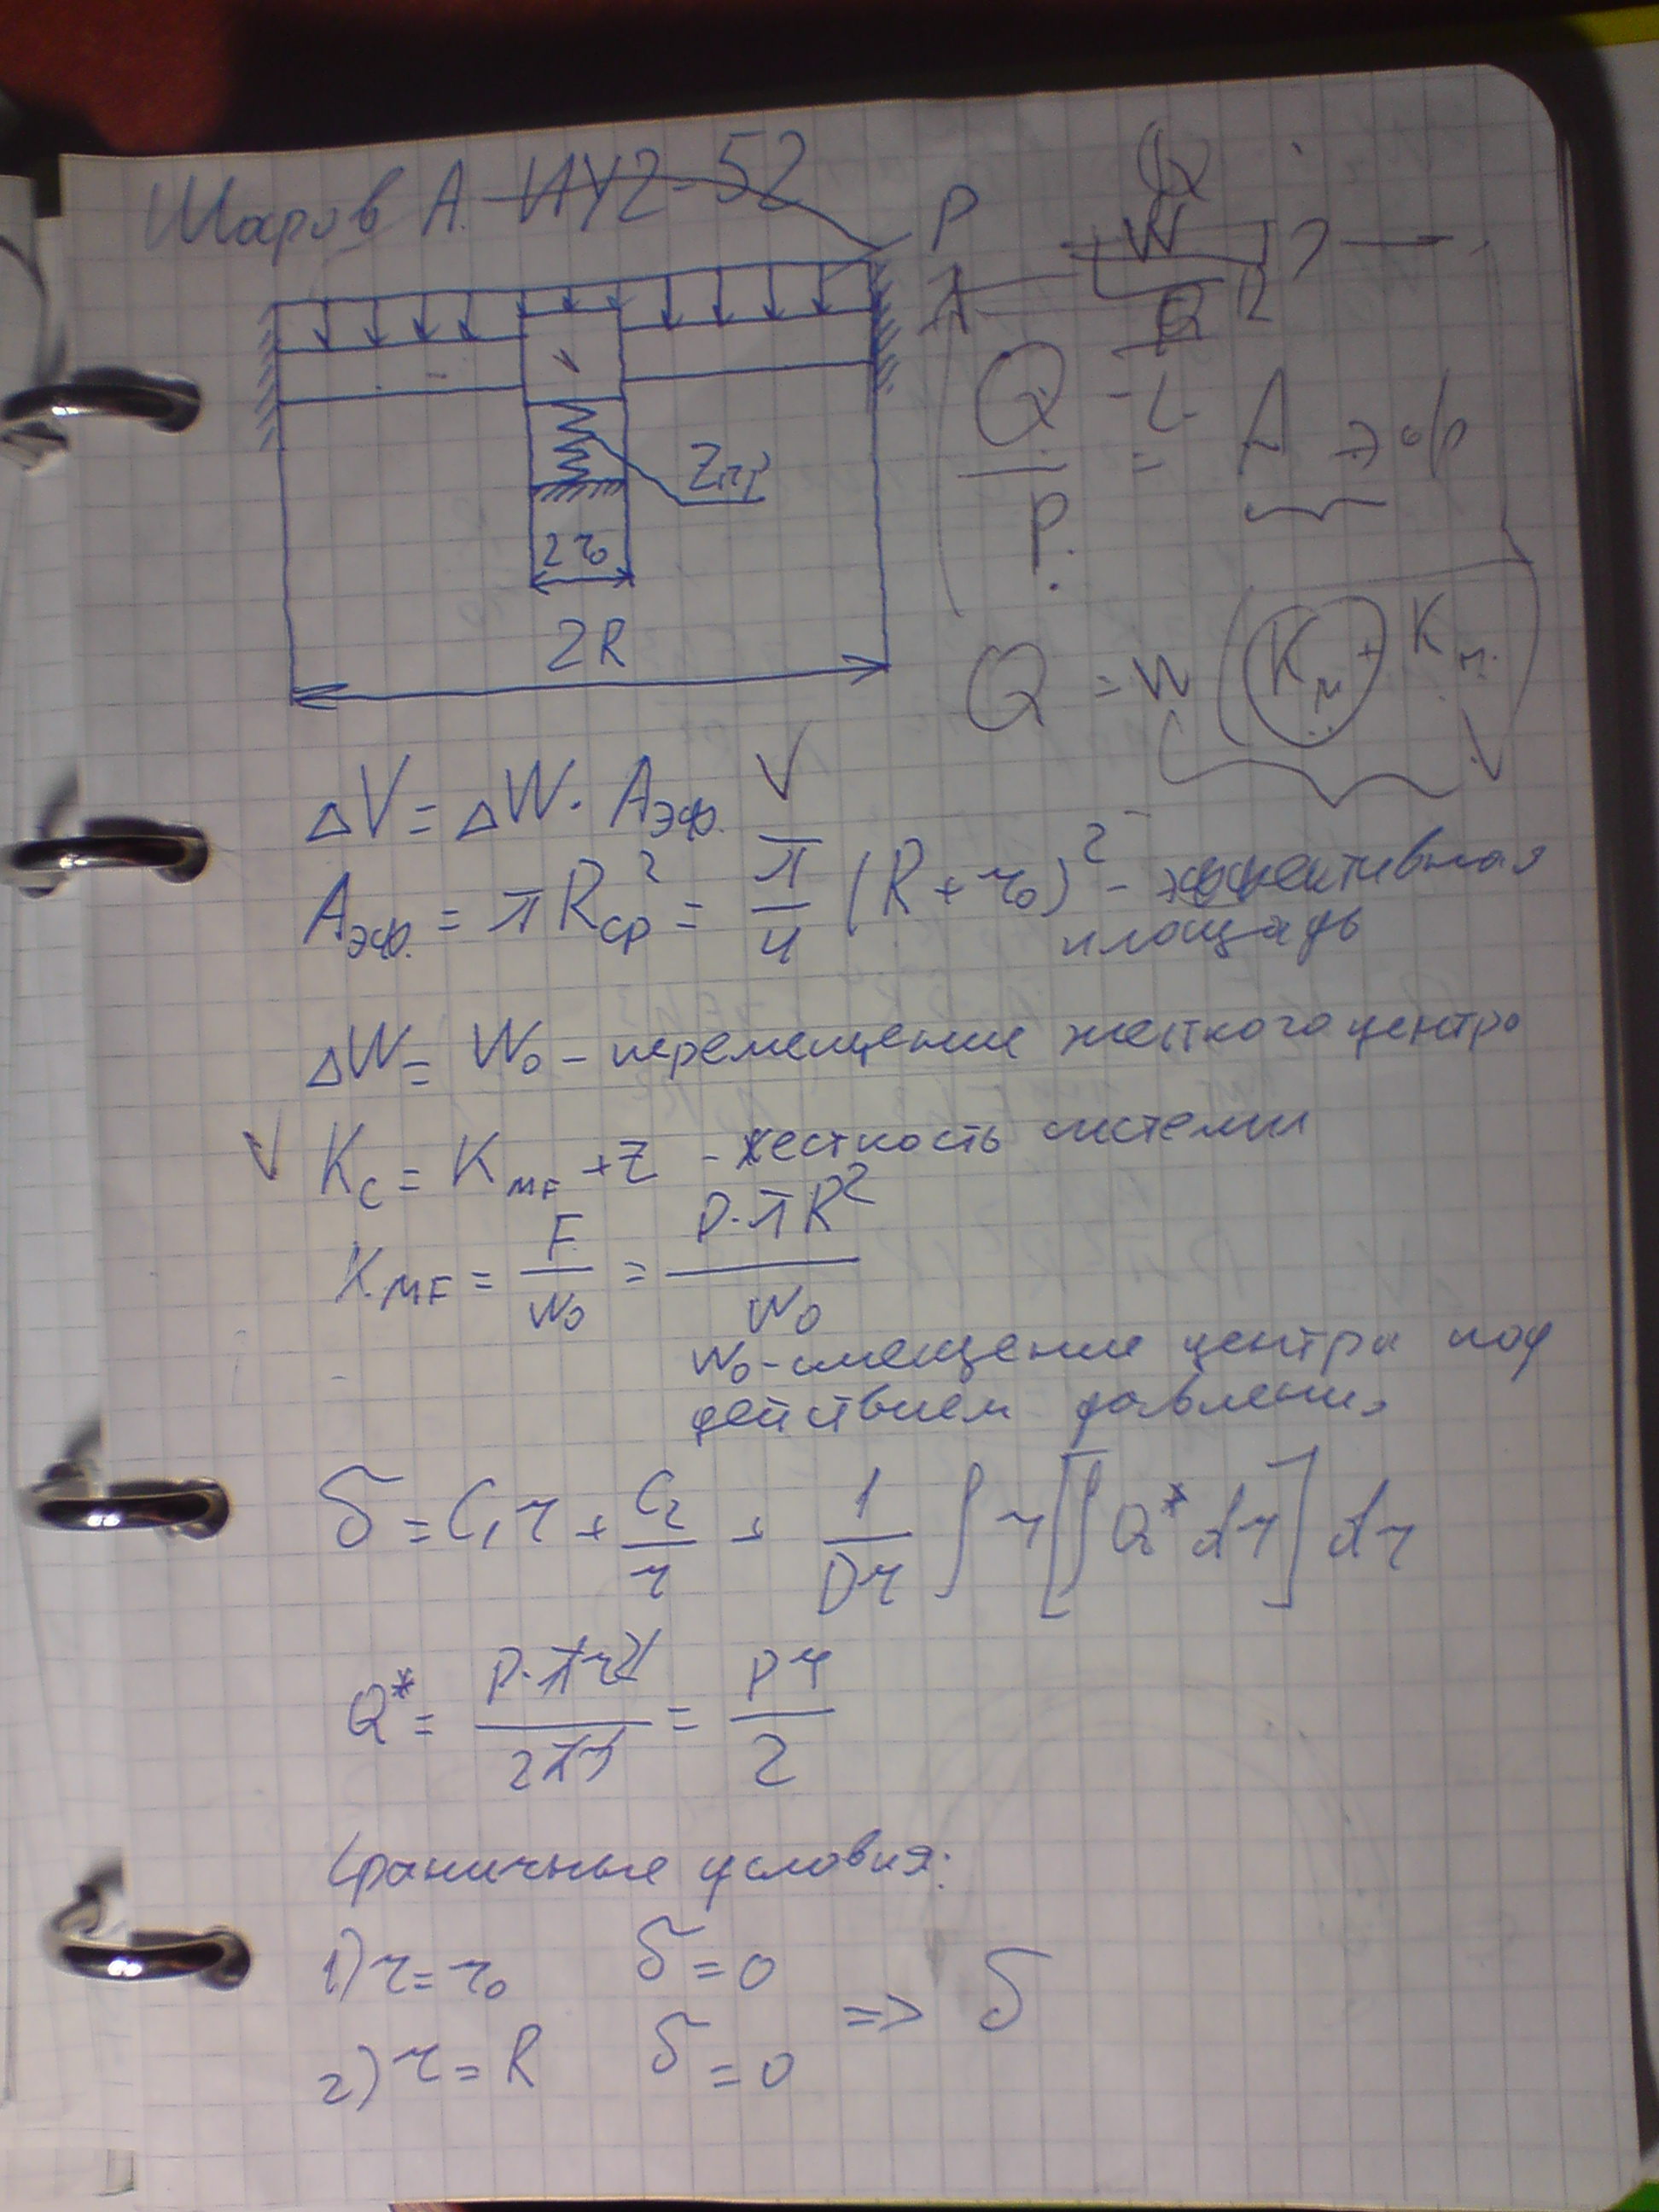 Шаров А. ИУ2-52
P
Zпр
2r₀
2R
Q
W
Q
Q / P = Aэф
Q = W (Kм + Kп)
ΔV = ΔW · Aэф. V
Aэф. = πRср² = π/4 (R + r₀)² - эффективная
площадь
ΔW = W₀ - перемещение жесткого центра
V Kc = KMF + Z - жесткость системы
KMF = F / W₀ = P·πR² / W₀
W₀ - смещение центра под
действием давления
δ = C₁r + C₂/r + 1/Dr ∫ r [∫ Q* dr] dr
Q* = P·πr² / 2πr = Pr / 2
Граничные условия:
1) r = r₀ δ = 0
2) r = R δ = 0 => δ